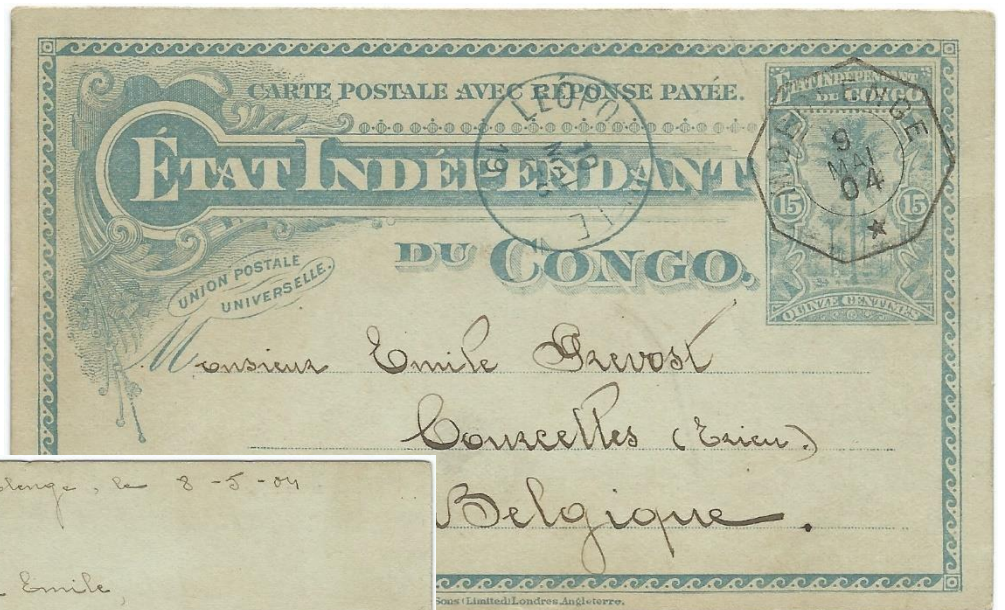 CARTE POSTALE AVEC RÉPONSE PAYÉE.
ÉTAT INDÉPENDANT
DU CONGO.
UNION POSTALE
UNIVERSELLE.
ÉTAT INDÉPENDANT
DE CONGO
15 15
QUINZE CENTIMES
9
MAI
04
LÉOPO
19
Monsieur Emile Prevost
Courcelles (Trieu)
Belgique.
le 8-5-04
Emile,
Sons (Limited) Londres, Angleterre.